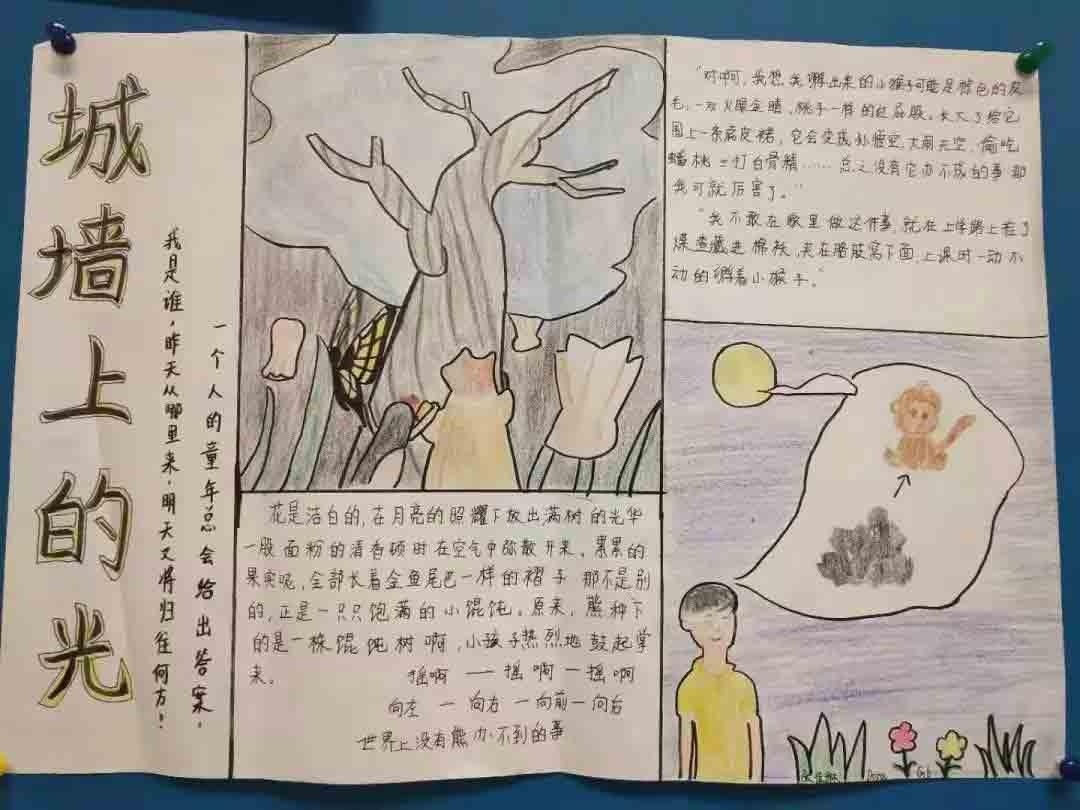 城墙上的光
我是谁，昨天从哪里来，明天又将归往何方！
一个人的童年总会给出答案。
花是洁白的，在月亮的照耀下放出满树的光华
一股面粉的清香顿时在空气中弥散开来，累累的
果实呢，全部长着金鱼尾巴一样的褶子 那不是别
的，正是一只只饱满的小馄饨。原来，熊种下
的是一株馄饨树啊，小孩子热烈地鼓起掌
来。 摇啊 一 摇啊 一 摇啊
向左 一 向右 一向前一向后
世界上没有熊办不到的事
"对啊，我想我孵出来的小猴子可能是棕色的皮
毛，一对火眼金睛，桃子一样的红屁股。长大了给它
围上一条虎皮裙，它会变成孙悟空，大闹天空，偷吃
蟠桃 三打白骨精……总之没有它办不成的事 那
我可就厉害了。"
"我不敢在家里做这件事，就在上学路上捡了
煤渣藏进棉袄，夹在胳肢窝下面，上课时一动不
动的孵着小猴子。"